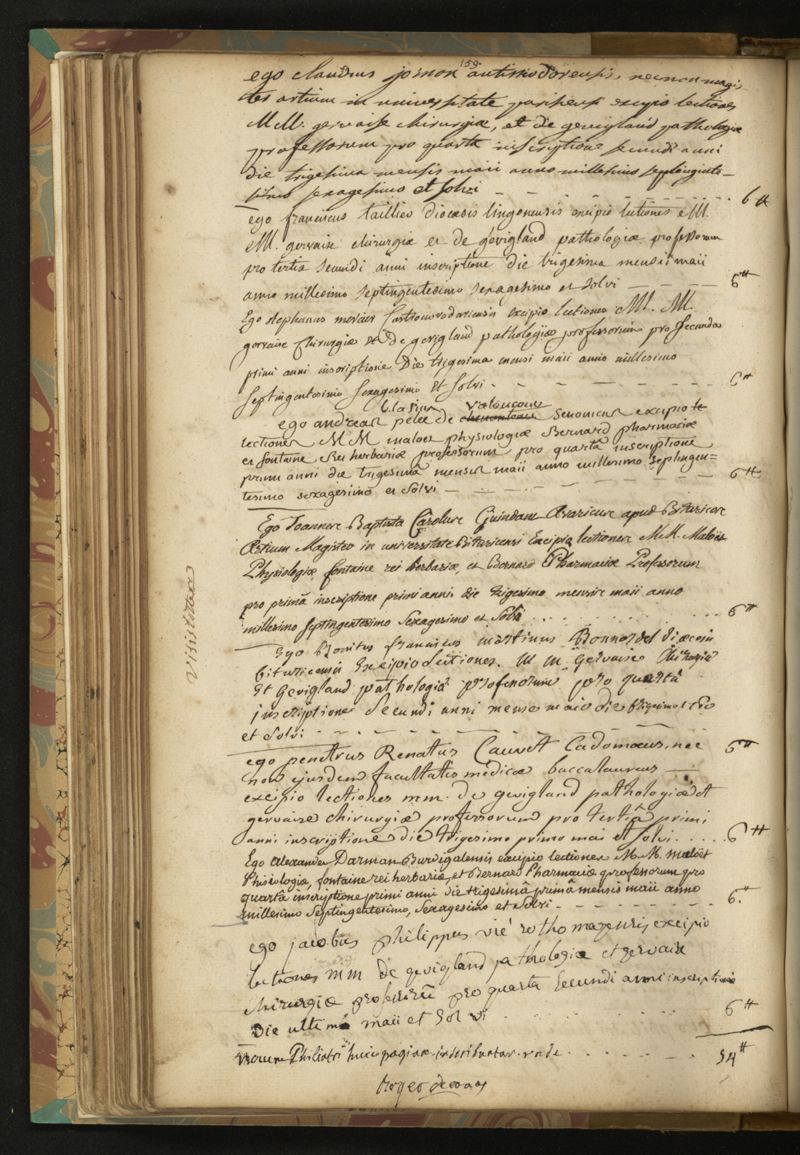 159.
ego claudius josnon antissiodorensis, necnon magis
ter artium in universitate parisiensi excipio lectiones
M.M. gervaise chirurgiæ, et de gevigland pathologiæ
professorum pro quarta inscriptione secundi anni
die trigesima mensis maii anno millesimo septingente-
simo sexagesimo et solvi 6 ₶
ego franciscus taillier diocesis lingonensis excipio lectiones M.
M. gervaise chirurgiæ et de gevigland pathologiæ professorum
pro tertia secundi anni inscriptione die trigesima mensis maii
anno millesimo septingentesimo sexagesimo et solvi 6 ₶
Ego stephanus mercier excipio lectiones M. M.
gervaise chirurgiæ et de gevigland pathologiæ professorum pro secunda
primi anni inscriptione Die trigesima mensis maii anno millesimo
septingentesimo sexagesimo et solvi 6 ₶
blasius valoucour
ego andreas pelée de senonicus excipio
lectiones M M maloet physiologiæ Bernard pharmaciæ
et fontaine Rei herbariæ professorum pro quartâ inscriptione
primi anni die trigesimâ mensis maii anno millesimo septingen=
tesimo sexagesimo et solvi 6 ₶
Ego Joannes Baptista Carolus Guindant Avaricus apud Bituriges
Artium Magister in universitate Bituricensi Excipio lectiones M.M. Maloet
Physiologiæ fontaine rei herbariæ et Bernard Pharmaciæ Professorum
pro primâ inscriptione primi anni die trigesimo mensis maii anno
millesimo septingentesimo sexagesimo et solvi 6 ₶
Ego Bonitus franciscus martinus Bonnodel diœcesis
bituricensis Excipio Lectiones M M. Gervaise chirurgiæ
Et Gevigland pathologiæ professorum pro quartâ
inscriptione secundi anni mense maio die
et solvi
6 ₶
ego petrus Renatus Cauvet Cadomæus, nec
non ejusdem facultatis medicæ baccalaureus
excipio lectiones mm. de gevigland pathologiæ et
gervaise chirurgiæ professorum pro tertiâ primi
anni inscriptione die trigesimo primo mai et solvi. 6 ₶
Ego Alexander Darman Burdigalensis excipio lectiones M. M. maloët
Phisiologiæ, fontaine rei herbariæ, et Bernard Pharmaciæ professorum pro
quartâ inscriptione primi anni die trigesimâ primâ mensis maii anno
millesimo septingentesimo, sexagesimo et solvi 6.
ego jacobus philippus vié rothomagensis excipio
lectiones mm de gevigland pathologiæ et gervaise
chirurgiæ professorum pro quarta secundi anni inscriptione
Die ultima maii et solvi 6 ₶
novem Philiatri huic paginæ inscribuntur. unde 54 ₶